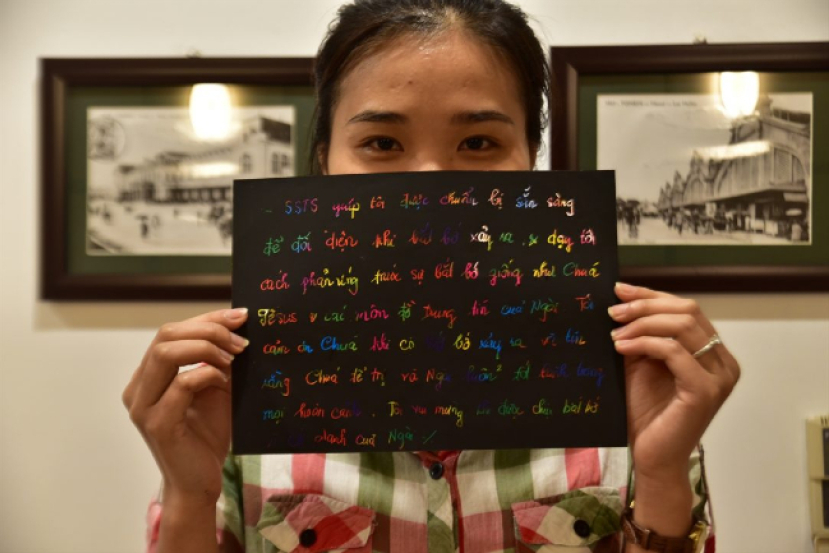 - SSTS giúp tôi được chuẩn bị sẵn sàng
để đối diện khi bắt bớ xảy ra. & dạy tôi
cách phản ứng trước sự bắt bớ giống như Chúa
Jêsus & các môn đồ Trung tín của Ngài. Tôi
cảm ơn Chúa khi có bớ xảy ra vì tin
rằng Chúa tể trị và Ngài luôn² tốt lành trong
mọi hoàn cảnh. Tôi vui mừng được chịu bắt bớ
danh của Ngài ✓